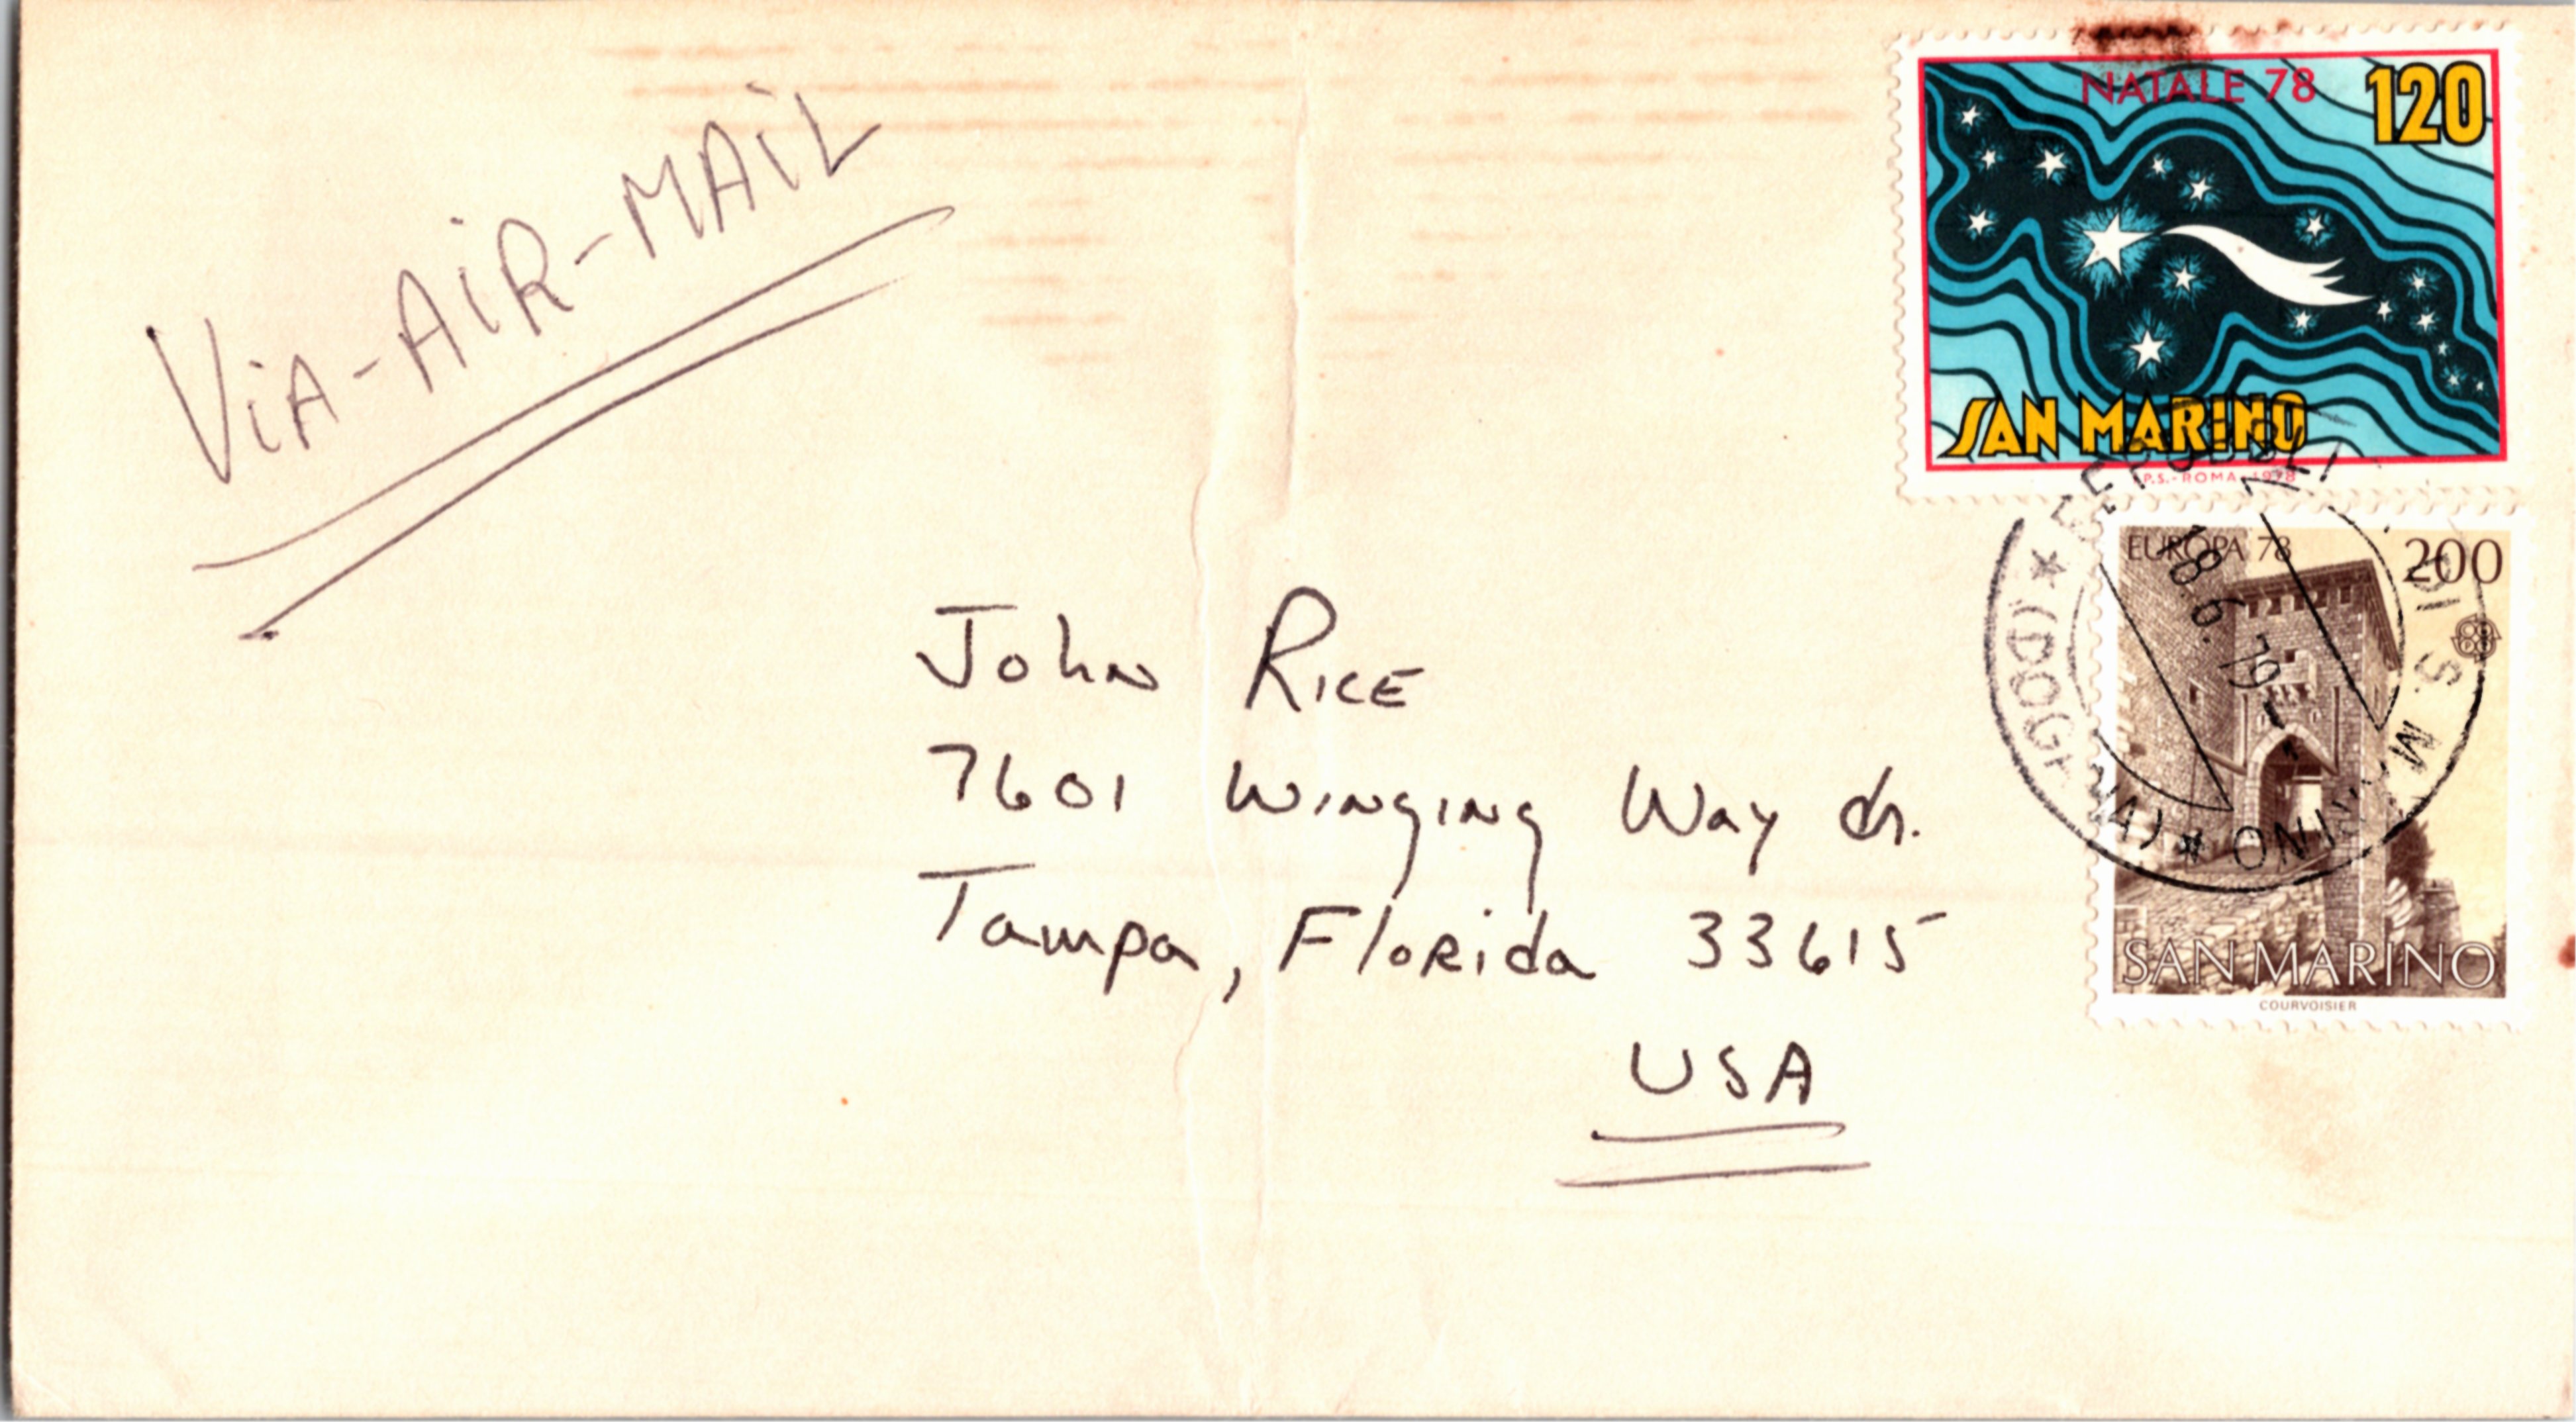 ViA-AiR-MAiL
NATALE 78
120
SAN MARINO
I.P.S.-ROMA-1978
EUROPA 78
200
18.6.79
DI S. MARINO
(DOGANA)
SAN MARINO
COURVOISIER
John Rice
7601 Winging Way dr.
Tampa, Florida 33615
USA